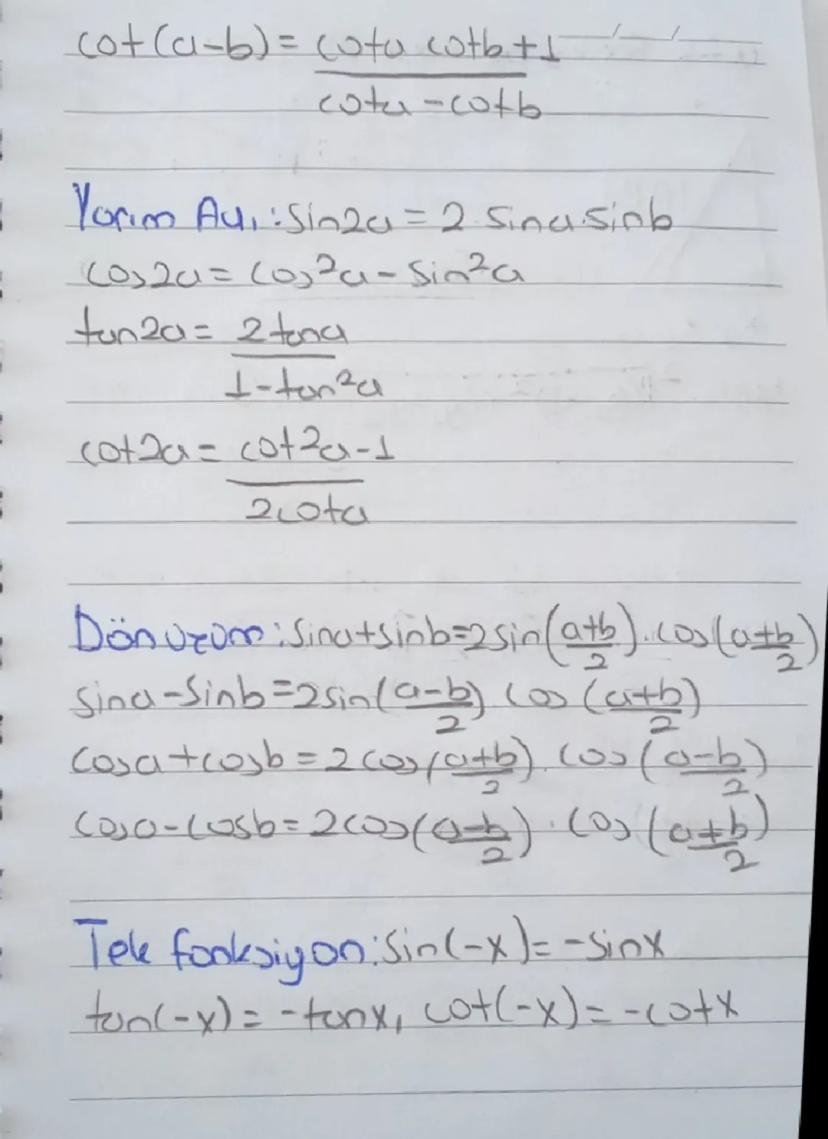 cot(a-b) = cota cotb+1
cota-cotb
Yarım Açı: sin2a = 2 sina.sinb
cos2a = cos²a - sin²a
tan2a = 2tana
1-tan²a
cot2a = cot²a-1
2cota
Dönüşüm: sina+sinb=2sin(a+b/2).cos(a+b/2)
sina-sinb=2sin(a-b/2) cos(a+b/2)
cosa+cosb = 2cos(a+b/2).cos(a-b/2)
cosa-cosb=2cos(a-b/2).cos(a+b/2)
Tek fonksiyon: sin(-x)= -sinx
tan(-x) = -tanx, cot(-x) = -cotx